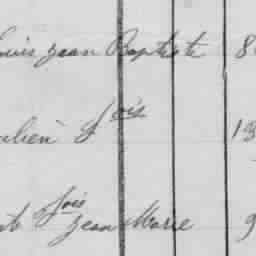 Louis Jean Baptiste 8
Julien fois 13
fois Jean Marie 9